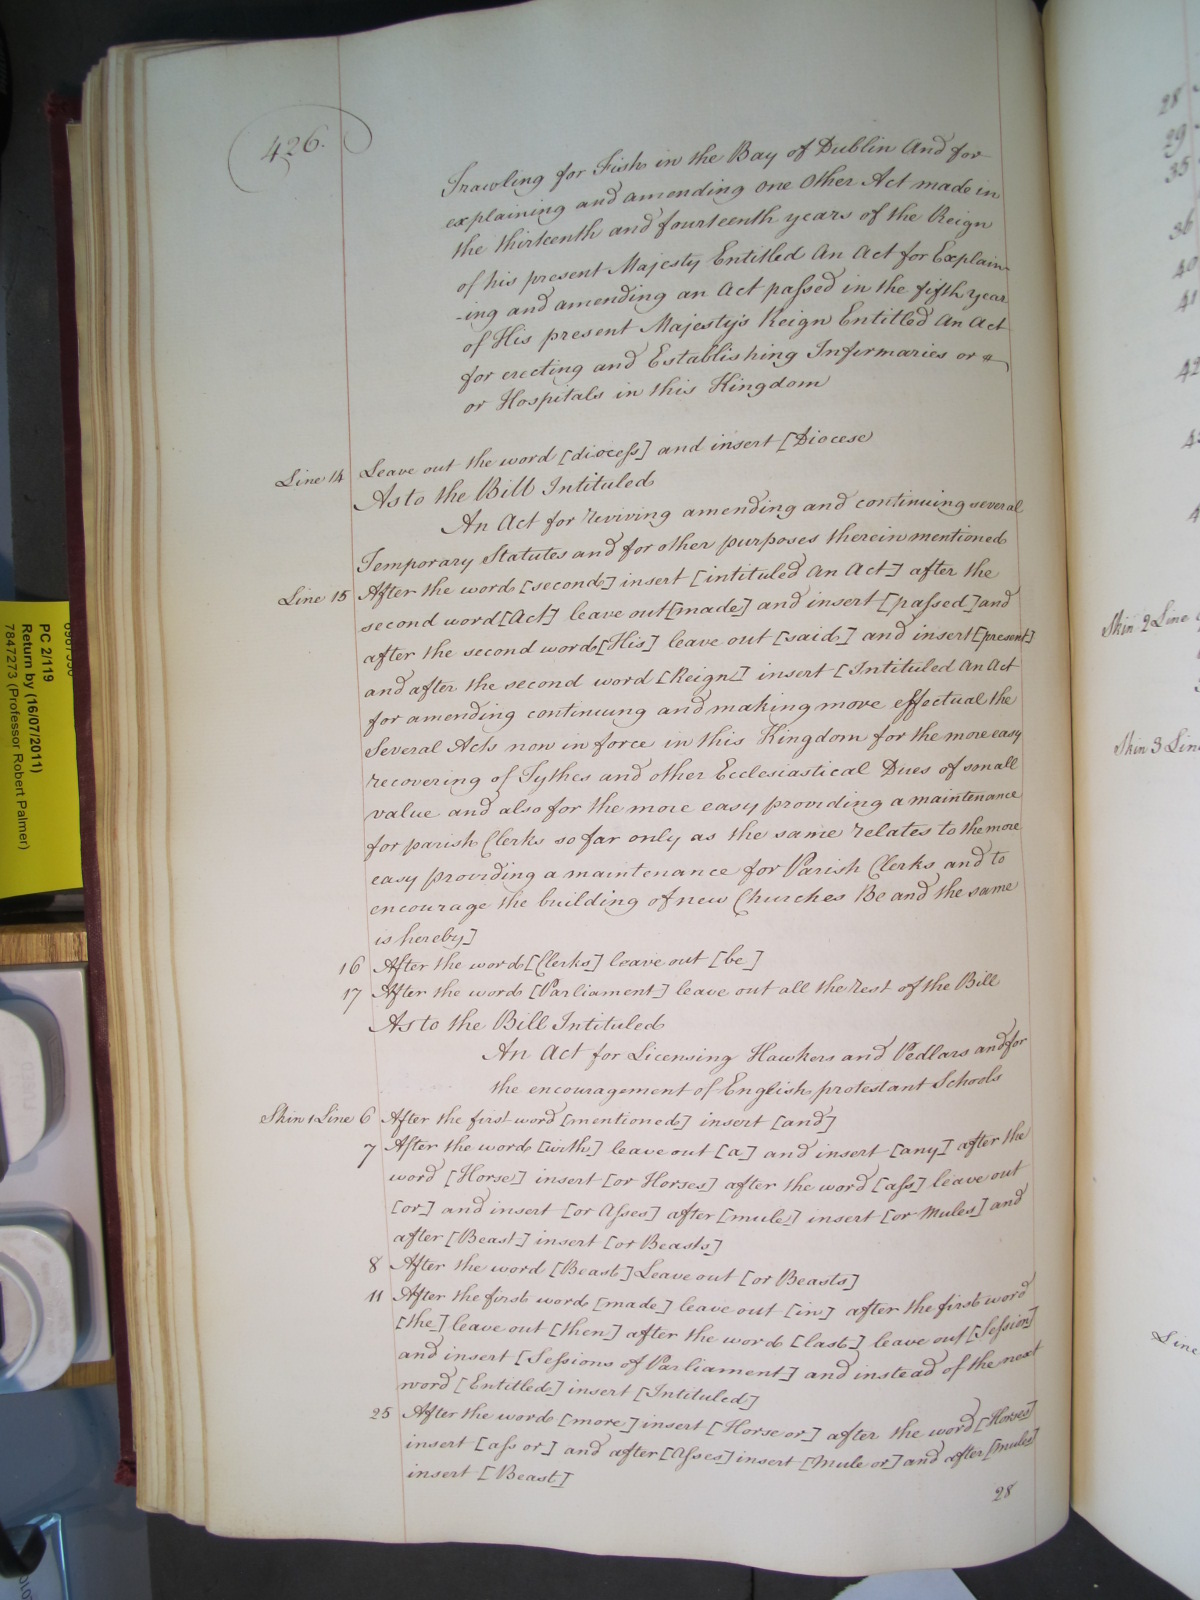 426.
Trawling for Fish in the Bay of Dublin And for
explaining and amending one Other Act made in
the thirteenth and fourteenth years of the Reign
of his present Majesty Entitled An Act for Explain-
-ing and amending an Act paſsed in the fifth year
of His present Majesty's Reign Entitled An Act
for erecting and Establishing Infirmaries or
or Hospitals in this Kingdom
Line 14 Leave out the word [dioceſs] and insert [Diocese
As to the Bill Intituled
An Act for reviving amending and continuing several
Temporary Statutes and for other purposes therein mentioned
Line 15 After the word [second] insert [intituled An Act] after the
second word [Act] leave out [made] and insert [paſsed] and
after the second word [His] leave out [said] and insert [present]
and after the second word [Reign] insert [Intituled An Act
for amending continuing and making more effectual the
Several Acts now in force in this Kingdom for the more easy
recovering of Tythes and other Ecclesiastical Dues of small
value and also for the more easy providing a maintenance
for parish Clerks so far only as the same relates to the more
easy providing a maintenance for Parish Clerks and to
encourage the building of new Churches Be and the same
is hereby]
16 After the word [Clerks] leave out [be]
17 After the word [Parliament] leave out all the rest of the Bill
As to the Bill Intituled
An Act for Licensing Hawkers and Pedlars and for
the encouragement of English protestant Schools
Skin 1 Line 6 After the first word [mentioned] insert [and]
7 After the word [with] leave out [a] and insert [any] after the
word [Horse] insert [or Horses] after the word [aſs] leave out
[or] and insert [or Aſses] after [mule] insert [or Mules] and
after [Beast] insert [or Beasts]
8 After the word [Beast] Leave out [or Beasts]
11 After the first word [made] leave out [in] after the first word
[the] leave out [then] after the word [last] leave out [Seſsion]
and insert [Seſsions of Parliament] and instead of the next
word [Entitled] insert [Intituled]
25 After the word [more] insert [Horse or] after the word [Horses]
insert [aſs or] and after [Aſses] insert [Mule or] and after [mules]
insert [Beast]
28
PC 2/119
Return by (16/07/2011)
7847273 (Professor Robert Palmer)
28
29
35
36
40
41
42
Skin 2 Line
Skin 3 Line
Line